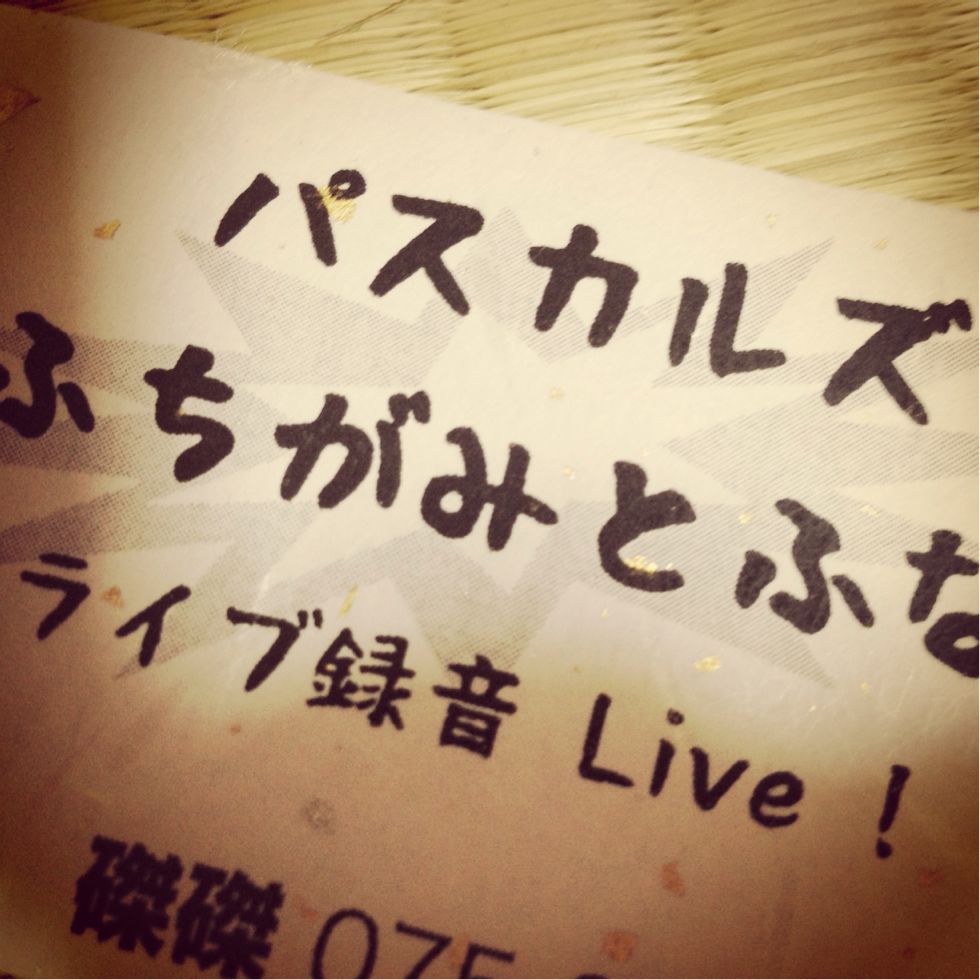 パスカルズ
ふちがみとふな
ライブ録音 Live !
磔磔 075